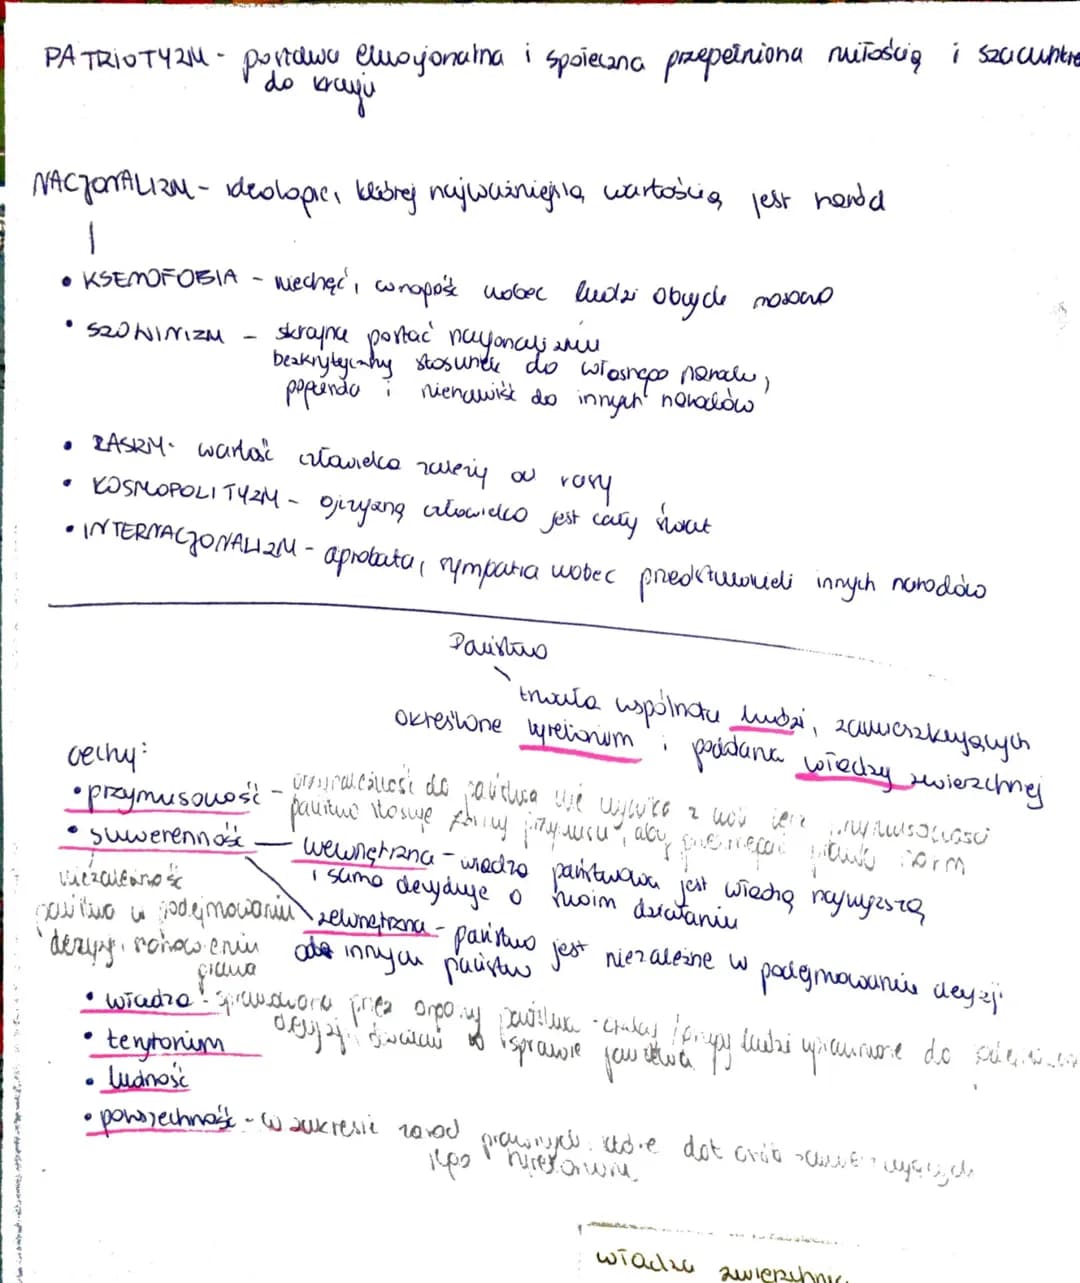 PATRIOTYZM - postawa emocjonalna i społeczna przepełniona miłością i szacunkie
do kraju
NACJONALIZM - ideologia, której najważniejszą wartością jest naród
• KSENOFOBIA - niechęć, wrogość wobec ludzi obcych
• SZOWINIZM - skrajna postać nacjonalizmu
bezkrytyczny stosunek do własnego narodu,
pogarda i nienawiść do innych narodów
• RASIZM - wartość człowieka zależy od rasy
• KOSMOPOLITYZM - ojczyzną człowieka jest cały świat
• INTERNACJONALIZM - aprobata, sympatia wobec przedstawicieli innych narodów
Państwo
trwała wspólnota ludzi, zamieszkujących
określone terytorium i poddana władzy zwierzchniej
cechy:
• przymusowość - przynależność do państwa nie wynika z woli lecz przymusowości
państwo stosuje formy przymusu, aby przestrzegać norm
• suwerenność - wewnętrzna - władza państwowa jest władzą najwyższą
i sama decyduje o swoim działaniu
niezależność
państwa w podejmowaniu
decyzji, stanowieniu
prawa
zewnętrzna - państwo jest niezależne w podejmowaniu decyzji
od innych państw
• władza - sprawowana przez organy państwa - grupy ludzi uprawnione do
decyzji w sprawie państwa
• terytorium
• ludność
• powszechność - w zakresie zasad prawnych, które dot. osób zamieszkujących
jego terytorium
władza zwierzchnia